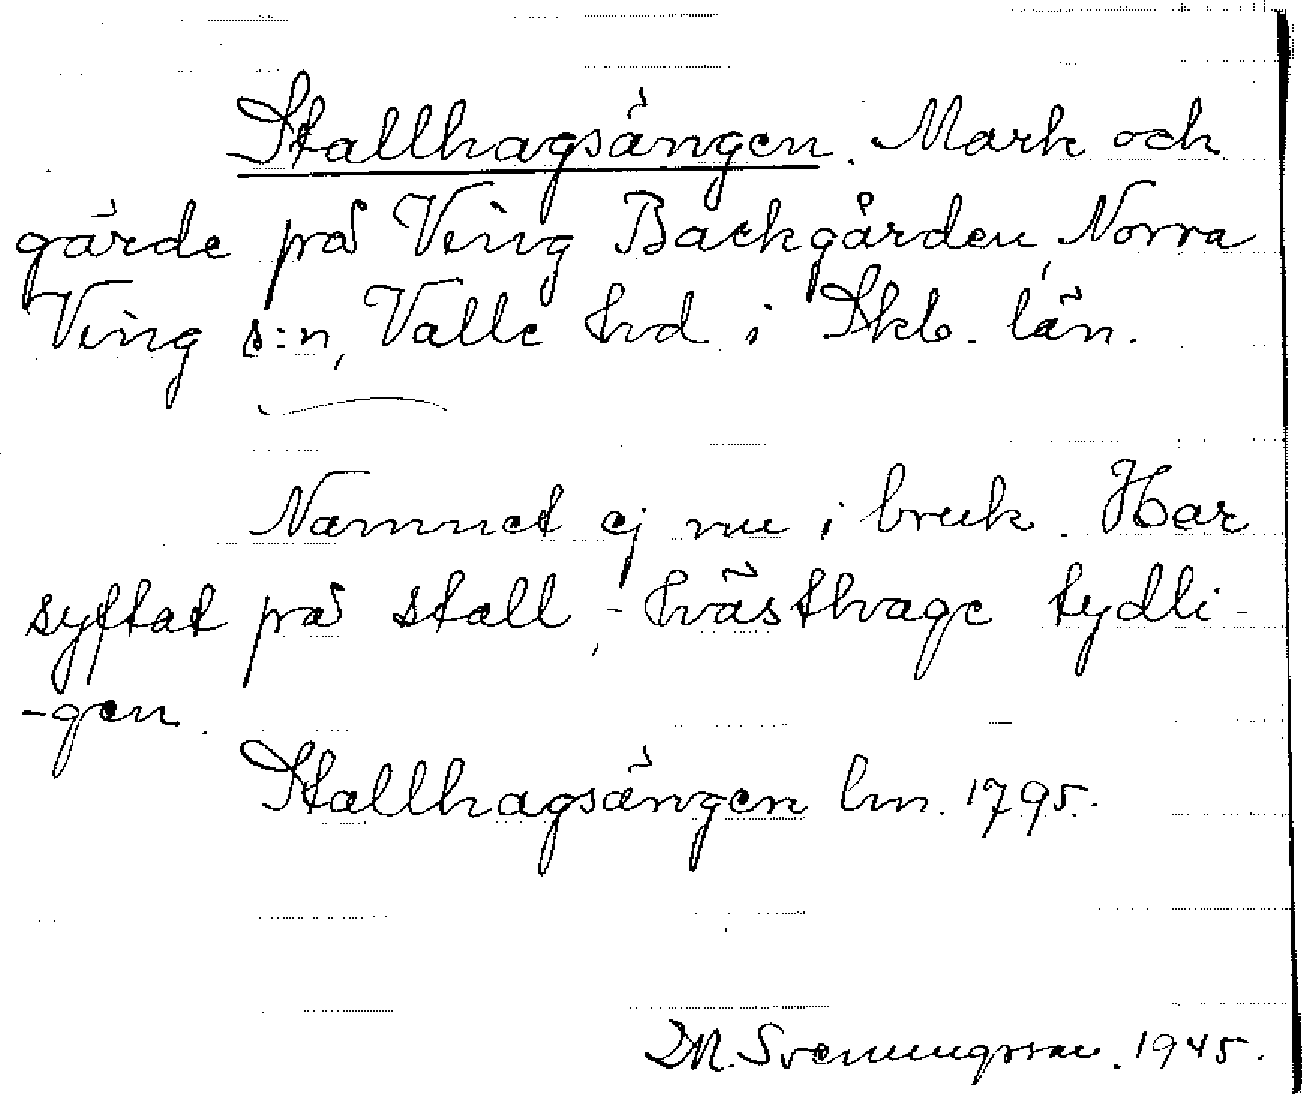 Stallhagsängen. Mark och
gärde på Ving Backgården, Norra
Ving s:n, Valle hrd. i Skb. län.
Namnet ej nu i bruk. Har
syftat på stall, - hästhage tydli-
-gen.
Stallhagsängen lm. 1795.
Svenungsson. 1945.